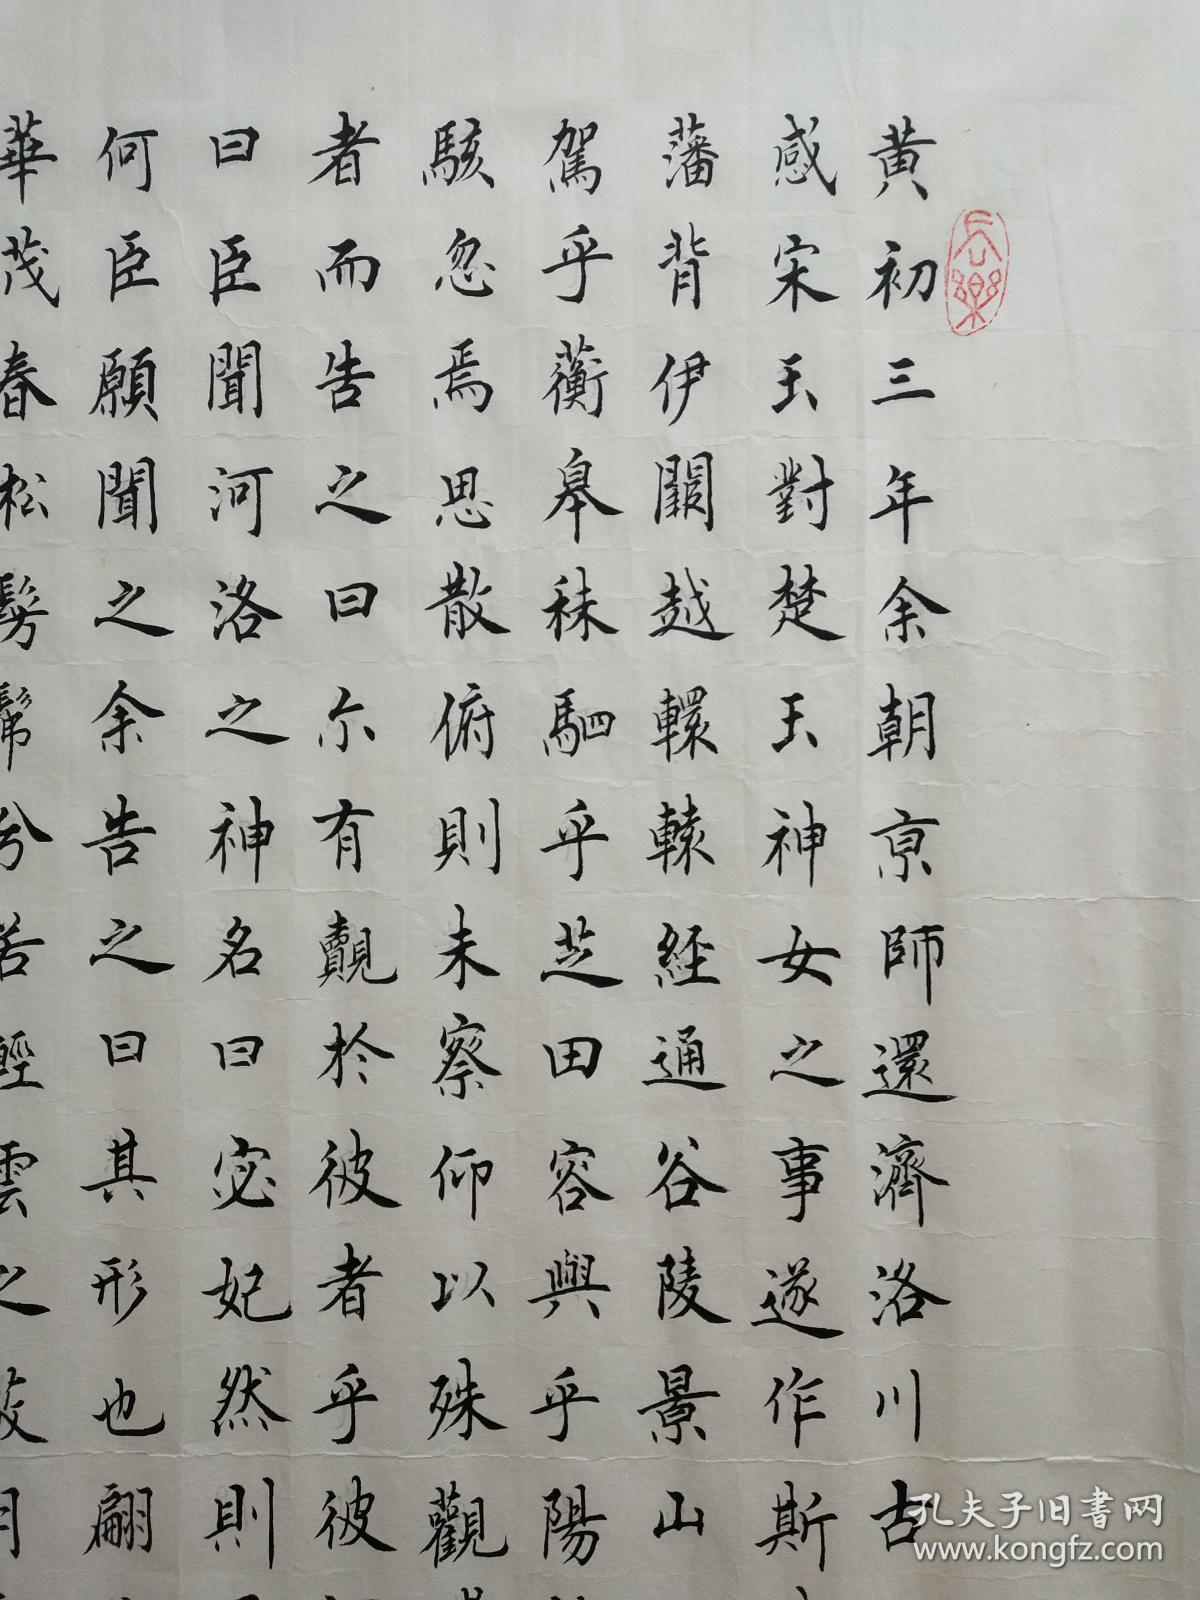 黄初三年余朝京師還濟洛川古
感宋玉對楚王神女之事遂作斯
藩背伊闕越轘轅經通谷陵景山
駕乎蘅皋秣駟乎芝田容與乎陽
駭忽焉思散俯則未察仰以殊觀
者而告之曰尓有覿於彼者乎彼
曰臣聞河洛之神名曰宓妃然則
何臣願聞之余告之曰其形也翩
華茂春松髣髴兮若輕雲之蔽月
長樂
孔夫子旧书网
www.kongfz.com